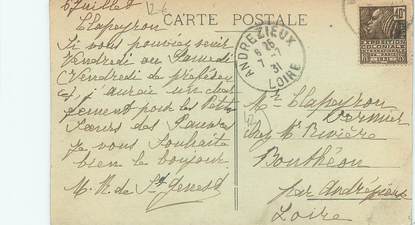 6 Juillet
Clapeyron
Si vous pouviez venir
Vendredi ou Samedi
(Vendredi de préférence
), j'aurais un char
gement pour les Petites
Sœurs des Pauvres
Je vous souhaite
bien le bonjour
M. de St Genest
CARTE POSTALE
ANDREZIEUX
7 -7
31
LOIRE
40c
EXPOSITION
COLONIALE
INTERNATIONALE
PARIS
1931
Mr Clapeyron
chez Mr Rivière
Bouthéon
par Andrézieux
Loire